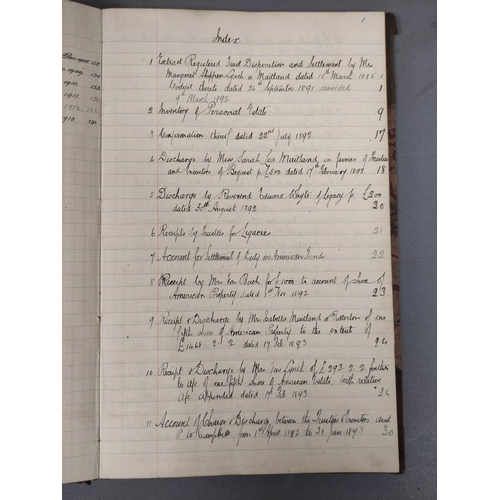 1910. 130
1911. 130
1912. 131
1913. 131
1
Index
1 Extract Registered Trust Disposition and Settlement by Mrs
Margaret Lynch or Maitland dated 10th March 1885 1
Codicil thereto dated 24th September 1891 recorded 1
9th March 1892
2 Inventory of Personal Estate 9
3 Confirmation thereof dated 22nd July 1892 17
4 Discharge by Miss Sarah Maitland in favour of Trustees
and Executors of Bequest p £500 dated 17th February 1893 18
5 Discharge by Reverend Edward Whyte of Legacy p. £200
dated 30th August 1892 20
6 Receipts by Trustees for Legacies 21
7 Account for Settlement of Duty on American Funds 22
8 Receipt by Mrs Von for £1000 to account of share of
American Property dated 1st Nov 1892 23
9 Receipt & Discharge by Mrs Isabella Maitland or Patterson of one
fifth share of American Property to the extent of
£1648. 2. 2 dated 17 Feb 1893 24
10 Receipt & Discharge by Mrs Von of £293. 2. 2 further
to a/c of one fifth share of American Estate, with relative
a/c appended dated 17th Feb 1893 26
11 Account of Charge & Discharge between the Trustees & Executors and
P. W. Campbell from 1st April 1882 to 31 Jan 1893 30